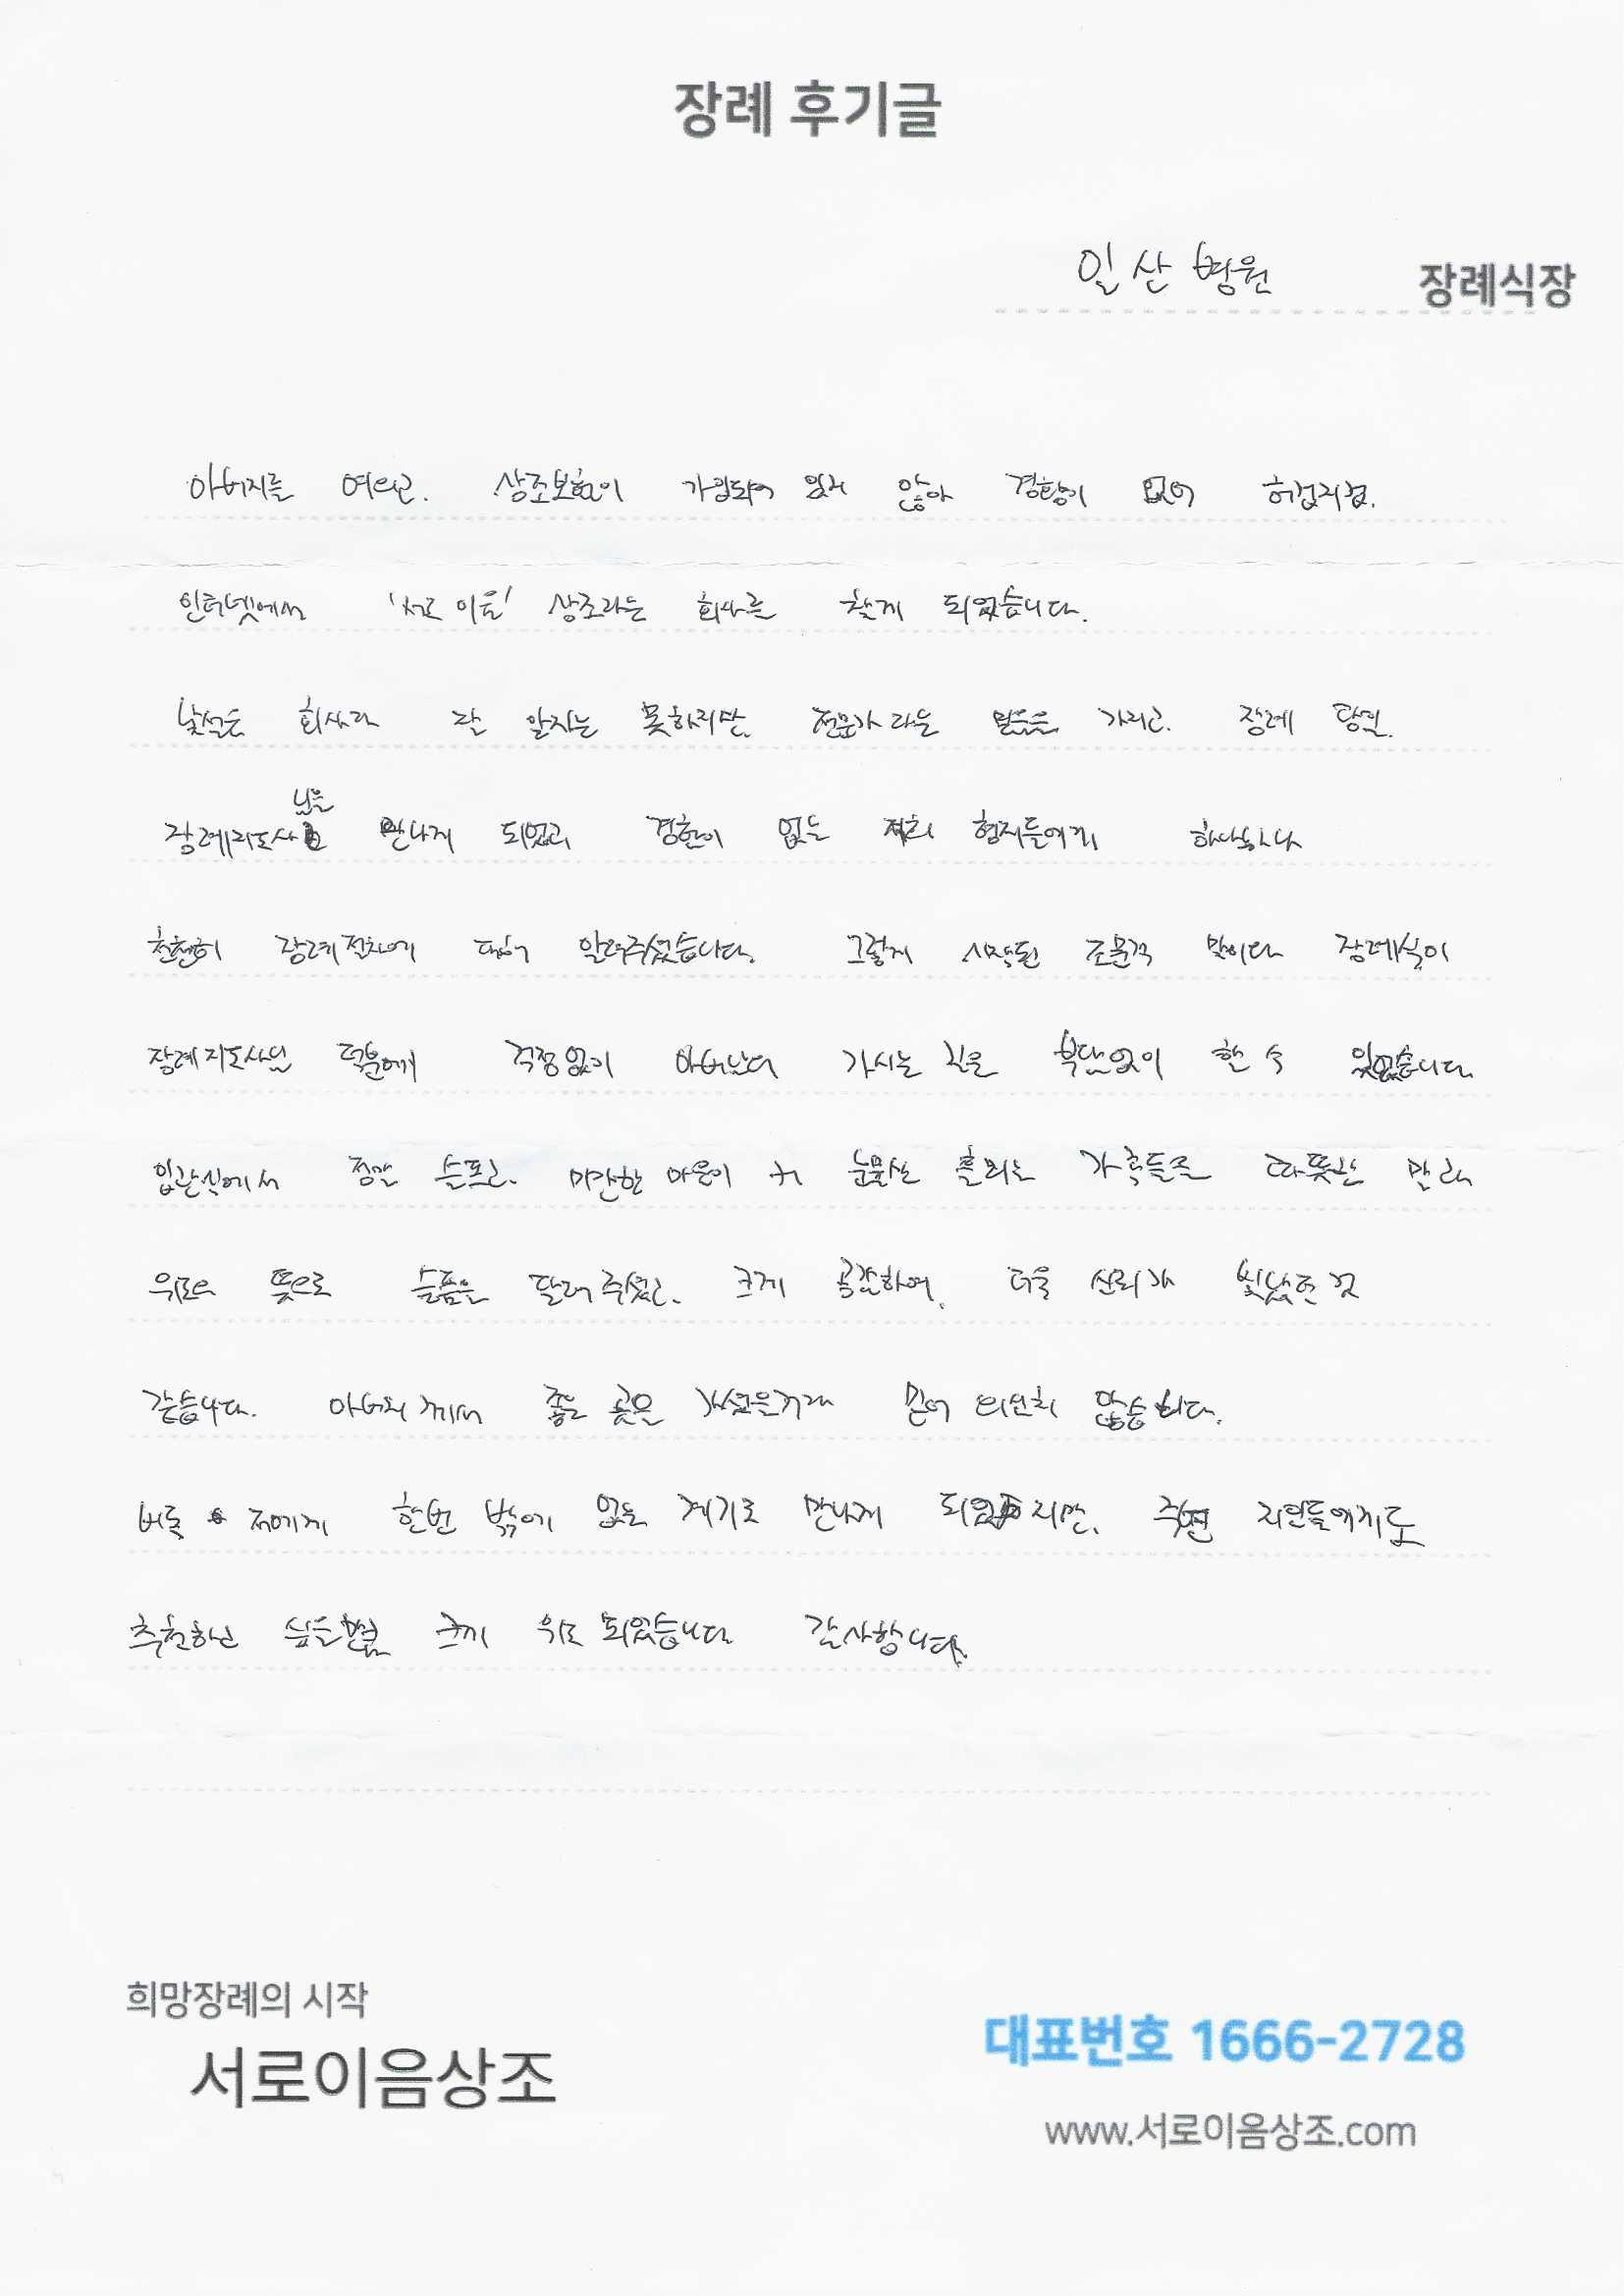 장례 후기글
일산병원 장례식장
아버지를 여의고. 상조보험이 가입되어 있지 않아 경황이 없어 허겁지겁.
인터넷에서 '서로이음' 상조라는 회사를 찾게 되었습니다.
낯설은 회사라 잘 알지는 못하지만, 전문가 다운 믿음을 가지고. 장례 당일.
장례지도사님을 만나게 되었고 경험이 없는 저희 형제들에게 하나하나
천천히 장례절차에 대해 알려주셨습니다. 그렇게 시작된 조문객 맞이와 장례식이
장례지도사님 덕분에 걱정없이 아버님의 가시는 길을 부담없이 할 수 있었습니다
입관실에서 정말 슬프고. 미안한 마음이 커 눈물만 흘리는 가족들로 따뜻한 말과
위로의 뜻으로 슬픔을 달래 주셨고. 크게 공감하여. 더욱 신뢰가 빛났던 것
같습니다. 아버지께서 좋은 곳을 가셨을거라 믿어 의심치 않습니다.
비록 저에게 한번 밖에 없는 계기로 만나게 되었지만. 주변 지인들에게도
추천하고 싶은만큼 크게 위로 되었습니다 감사합니다.
희망장례의 시작
서로이음상조
대표번호 1666-2728
www.서로이음상조.com